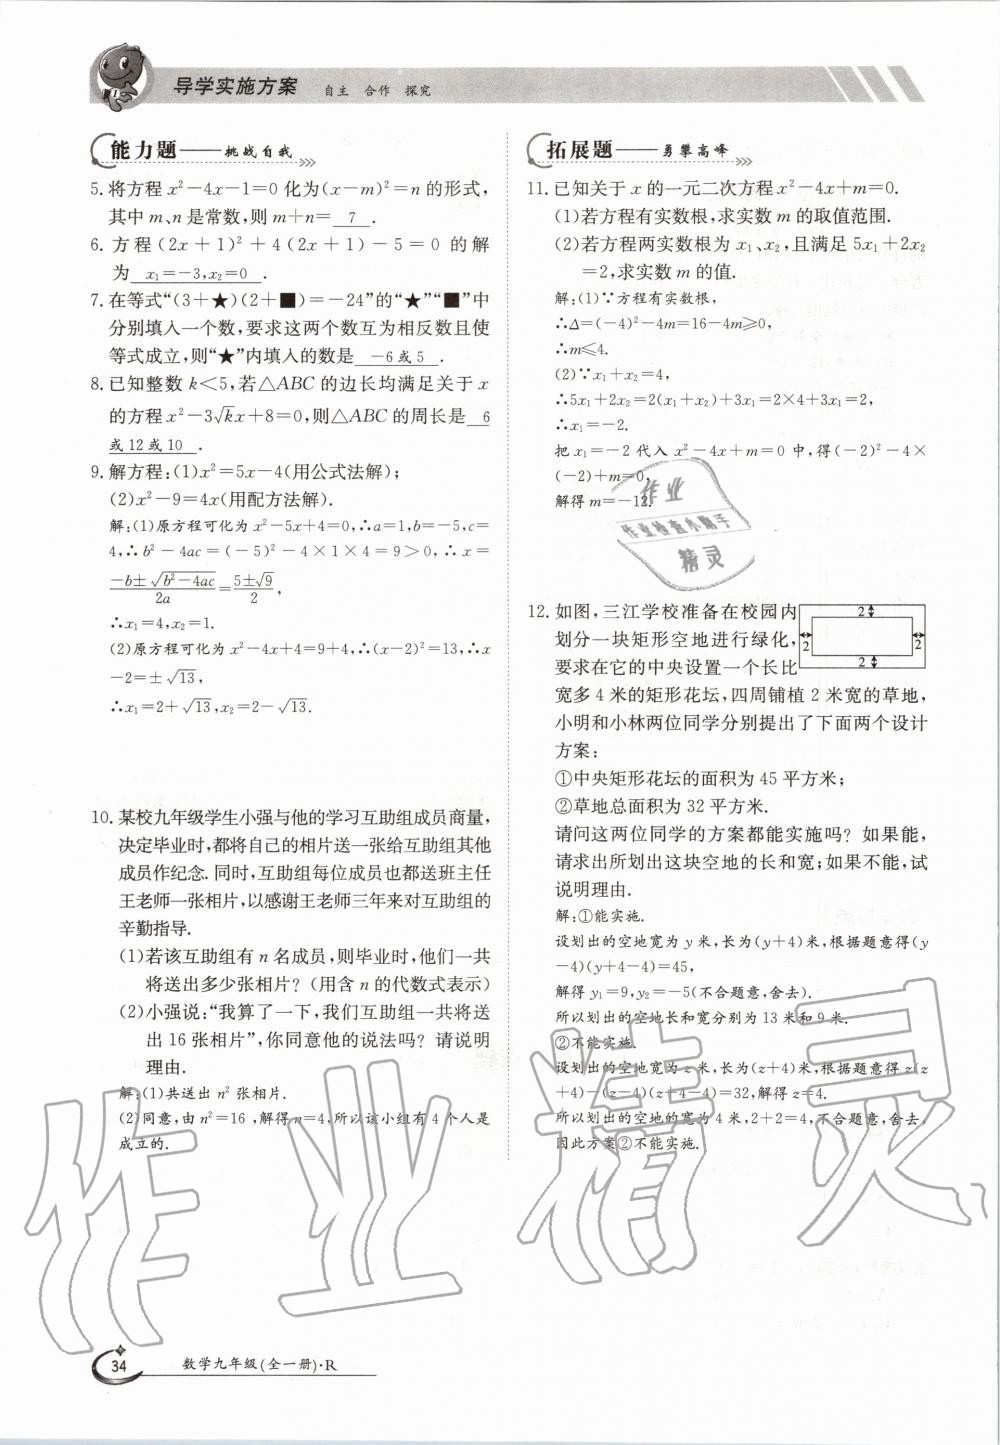 导学实施方案 自主 合作 探究
能力题——挑战自我
5. 将方程 x²-4x-1=0 化为(x-m)²=n 的形式,
其中 m、n 是常数,则 m+n= 7 .
6. 方程 (2x+1)²+4(2x+1)-5=0 的解
为 x₁=-3,x₂=0 .
7. 在等式“(3+★)(2+■)=-24”的“★”“■”中
分别填入一个数,要求这两个数互为相反数且使
等式成立,则“★”内填入的数是 -6或5 .
8. 已知整数 k<5,若△ABC 的边长均满足关于 x
的方程 x²-3√kx+8=0,则△ABC 的周长是 6
或12或10 .
9. 解方程:(1)x²=5x-4(用公式法解);
(2)x²-9=4x(用配方法解).
解:(1)原方程可化为 x²-5x+4=0,∴a=1,b=-5,c=
4,∴b²-4ac=(-5)²-4×1×4=9>0,∴x=
(-b±√(b²-4ac))/2a=(5±√9)/2,
∴x₁=4,x₂=1.
(2)原方程可化为 x²-4x+4=9+4,∴(x-2)²=13,∴x
-2=±√13,
∴x₁=2+√13,x₂=2-√13.
10. 某校九年级学生小强与他的学习互助组成员商量,
决定毕业时,都将自己的相片送一张给互助组其他
成员作纪念. 同时,互助组每位成员也都送班主任
王老师一张相片,以感谢王老师三年来对互助组的
辛勤指导.
(1)若该互助组有 n 名成员,则毕业时,他们一共
将送出多少张相片?(用含 n 的代数式表示)
(2)小强说:“我算了一下,我们互助组一共将送
出 16 张相片”,你同意他的说法吗? 请说明
理由.
解:(1)共送出 n² 张相片.
(2)同意,由 n²=16,解得 n=4,所以该小组有 4 个人是
成立的.
拓展题——勇攀高峰
11. 已知关于 x 的一元二次方程 x²-4x+m=0.
(1)若方程有实数根,求实数 m 的取值范围.
(2)若方程两实数根为 x₁、x₂,且满足 5x₁+2x₂
=2,求实数 m 的值.
解:(1)∵方程有实数根,
∴Δ=(-4)²-4m=16-4m≥0,
∴m≤4.
(2)∵x₁+x₂=4,
∴5x₁+2x₂=2(x₁+x₂)+3x₁=2×4+3x₁=2,
∴x₁=-2.
把 x₁=-2 代入 x²-4x+m=0 中,得(-2)²-4×
(-2)+m=0,
解得 m=-12.
作业
作业检查小助手
精灵
12. 如图,三江学校准备在校园内
划分一块矩形空地进行绿化,
要求在它的中央设置一个长比
宽多 4 米的矩形花坛,四周铺植 2 米宽的草地,
小明和小林两位同学分别提出了下面两个设计
方案:
①中央矩形花坛的面积为 45 平方米;
②草地总面积为 32 平方米.
请问这两位同学的方案都能实施吗? 如果能,
请求出所划出这块空地的长和宽;如果不能,试
说明理由.
2
2
2
2
解:①能实施.
设划出的空地宽为 y 米,长为(y+4)米,根据题意得(y
-4)(y+4-4)=45,
解得 y₁=9,y₂=-5(不合题意,舍去).
所以划出的空地长和宽分别为 13 米和 9 米.
②不能实施.
设划出的空地宽为 z 米,长为(z+4)米,根据题意得 z(z
+4)-(z-4)(z+4-4)=32,解得 z=4.
所以划出的空地的宽为 4 米,2+2=4,不合题意,舍去,
因此方案②不能实施.
作业精灵
34 数学九年级(全一册)·R